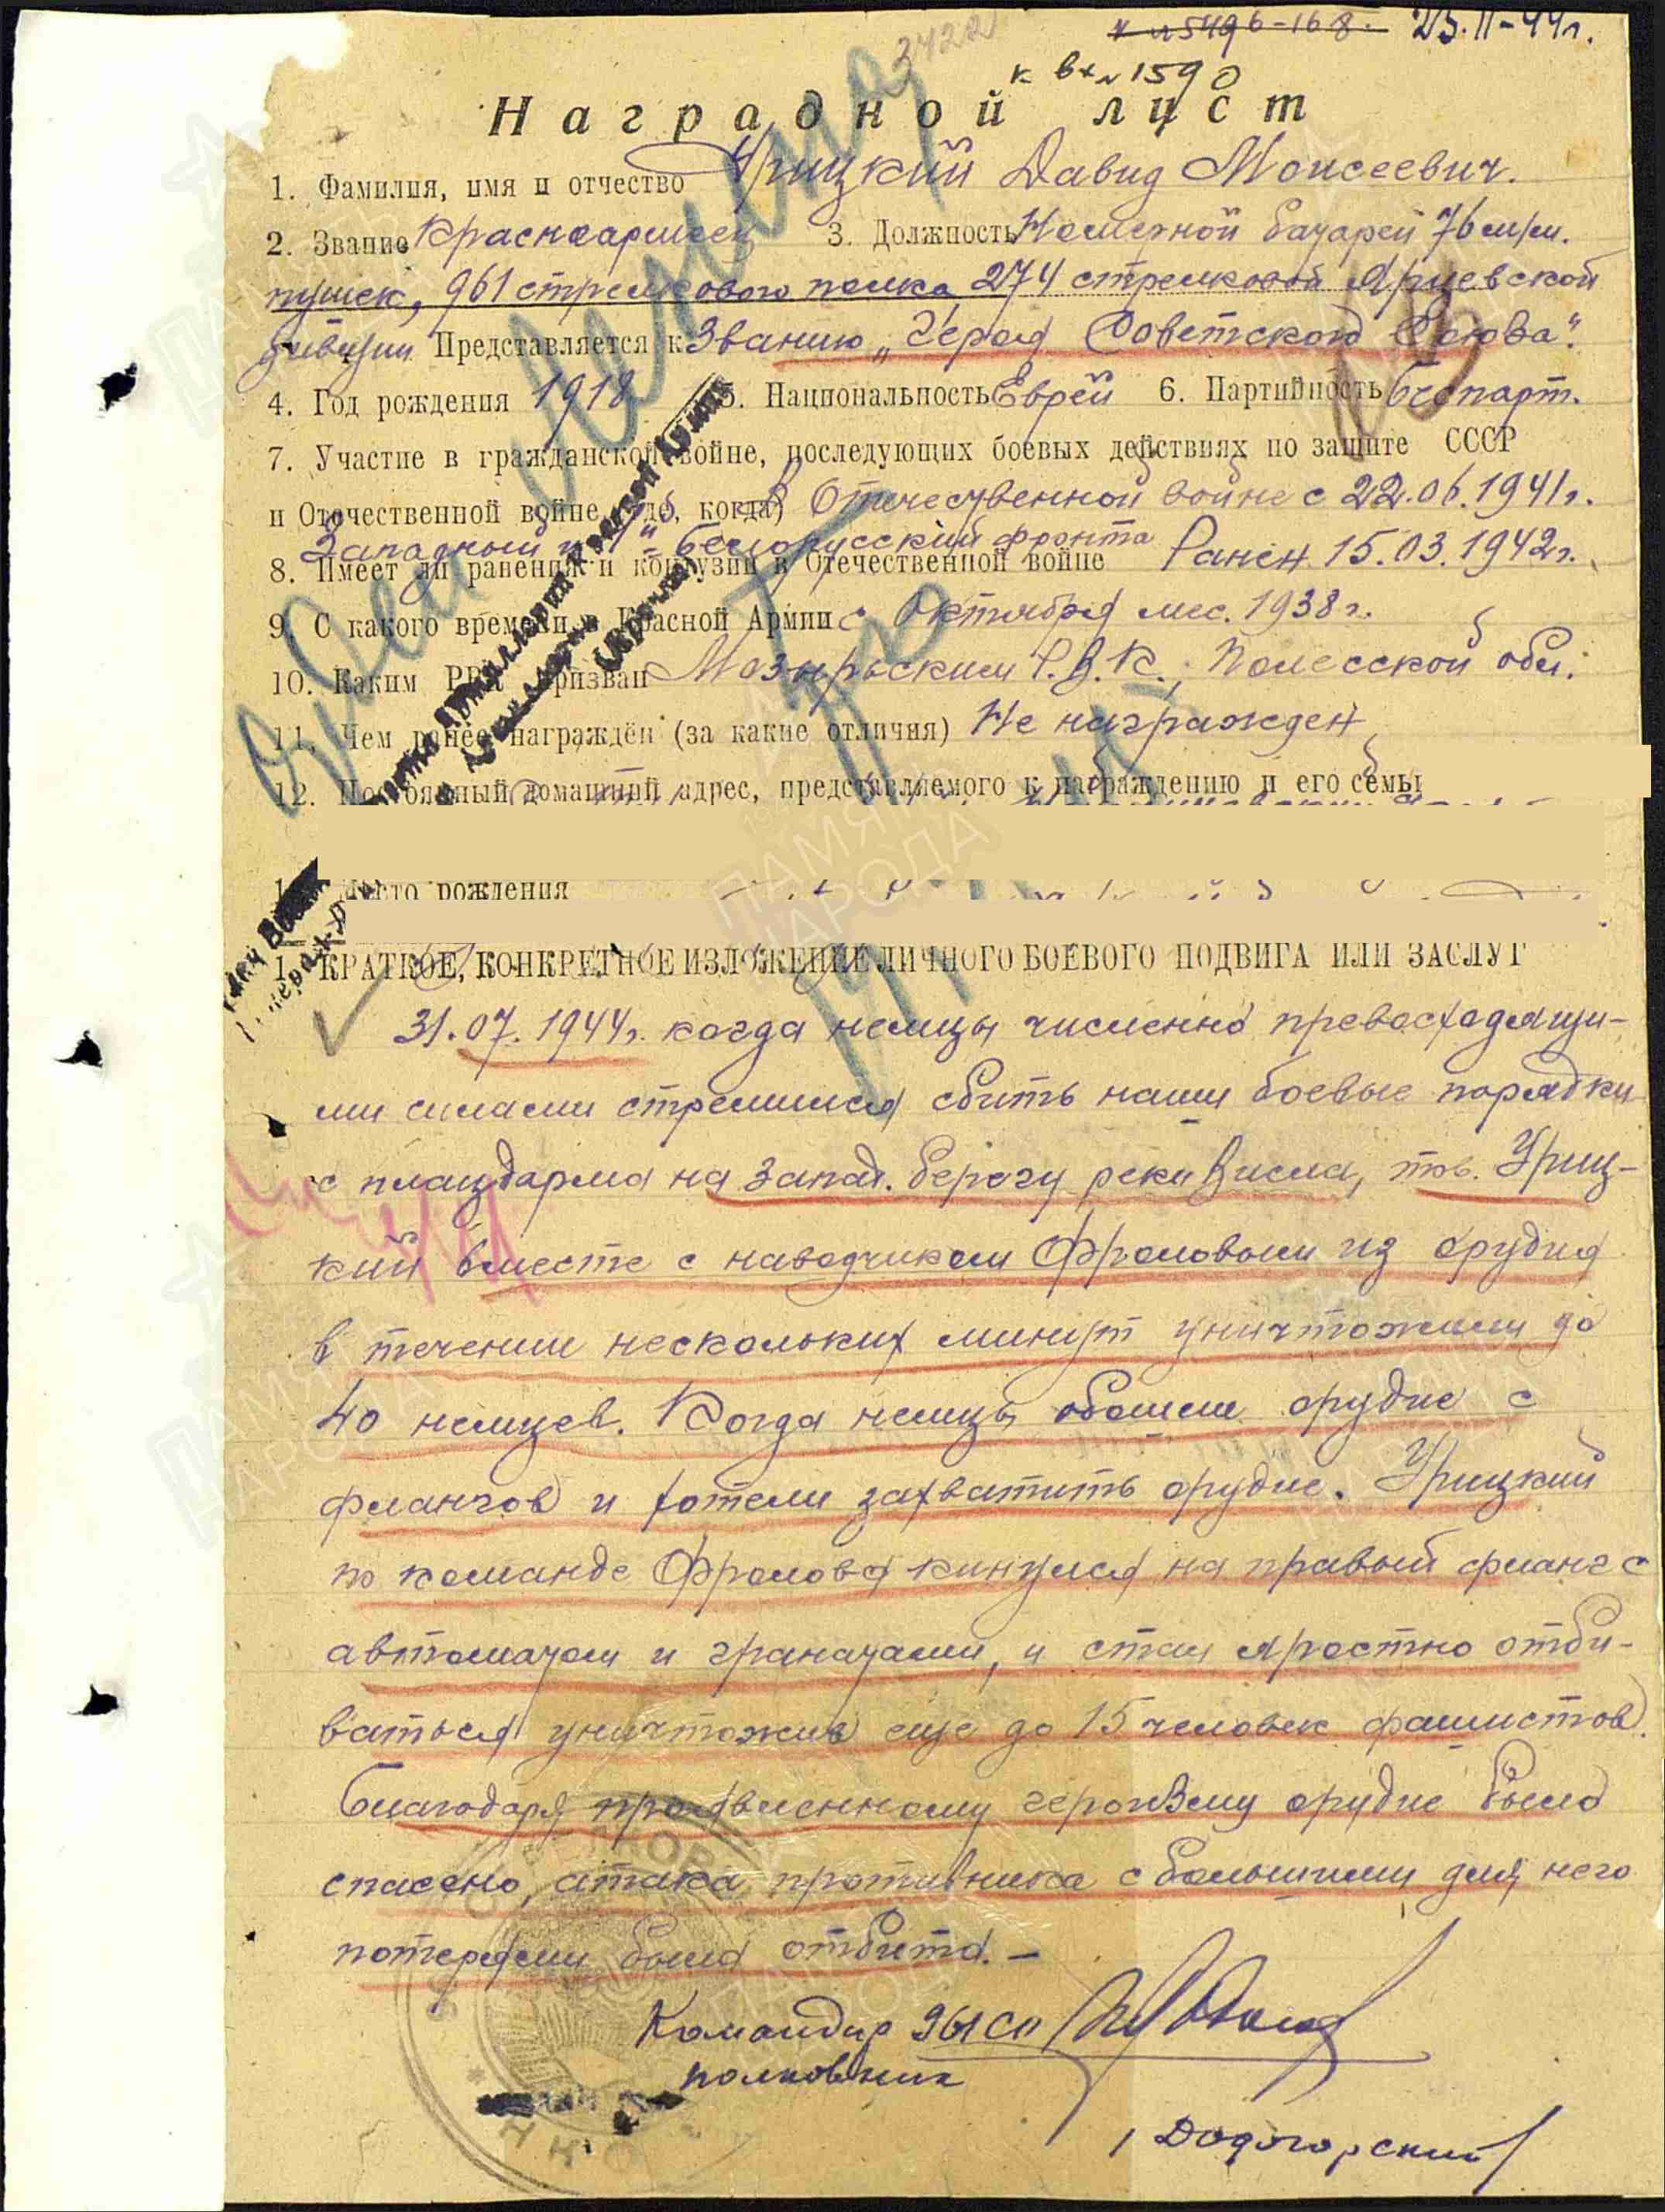 3422
к вх № 1590
23.II-44г.
Наградной лист
1. Фамилия, имя и отчество Урицкий Давид Моисеевич.
2. Звание Красноармеец 3. Должность Номерной батареи 76 м/м.
пушек, 961 стрелкового полка, 274 стрелковой Ярцевской
дивизии Представляется к Званию „Героя Советского Союза".
4. Год рождения 1918 5. Национальность Еврей 6. Партийность беспарт.
7. Участие в гражданской войне, последующих боевых действиях по защите СССР
и Отечественной войне (где, когда) В Отечественной войне с 22.06.1941г.
Западный и 1й Белорусский фронта
8. Имеет ли ранения и контузии в Отечественной войне Ранен 15.03.1942г.
9. С какого времени в Красной Армии с Октября мес. 1938г.
10. Каким РВК призван Мозырьским Р.В.К., Полесской обл.
11. Чем ранее награждён (за какие отличия) Не награжден
12. Постоянный домашний адрес, представляемого к награждению и его семьи
Место рождения
КРАТКОЕ, КОНКРЕТНОЕ ИЗЛОЖЕНИЕ ЛИЧНОГО БОЕВОГО ПОДВИГА ИЛИ ЗАСЛУГ
31.07.1944г. когда немцы численно превосходящи-
ми силами стремился сбить наши боевые порядки
с плацдарма на запад. берегу реки Висла, тов. Уриц-
кий вместе с наводчиком Фроловым из орудия
в течении нескольких минут уничтожили до
40 немцев. Когда немцы обошли орудие с
флангов и хотели захватить орудие. Урицкий
по команде Фролова кинулся на правый фланг с
автоматом и гранатами, и стал яростно отби-
ваться уничтожив еще до 15 человек фашистов.
Благодаря проявленному героизму орудие было
спасено, атака противника с большими для него
потерями была отбита. —
Командир 961 сп
полковник